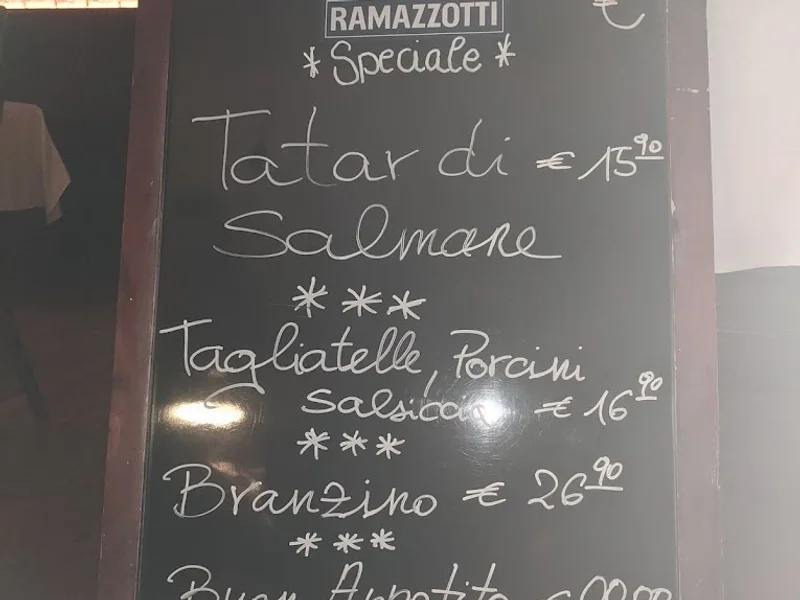 RAMAZZOTTI
€
* Speciale *
Tatar di € 15 90
Salmone
* * *
Tagliatelle, Porcini
Salsiccia € 16 90
* * *
Branzino € 26 90
* * *
Buon Appetito